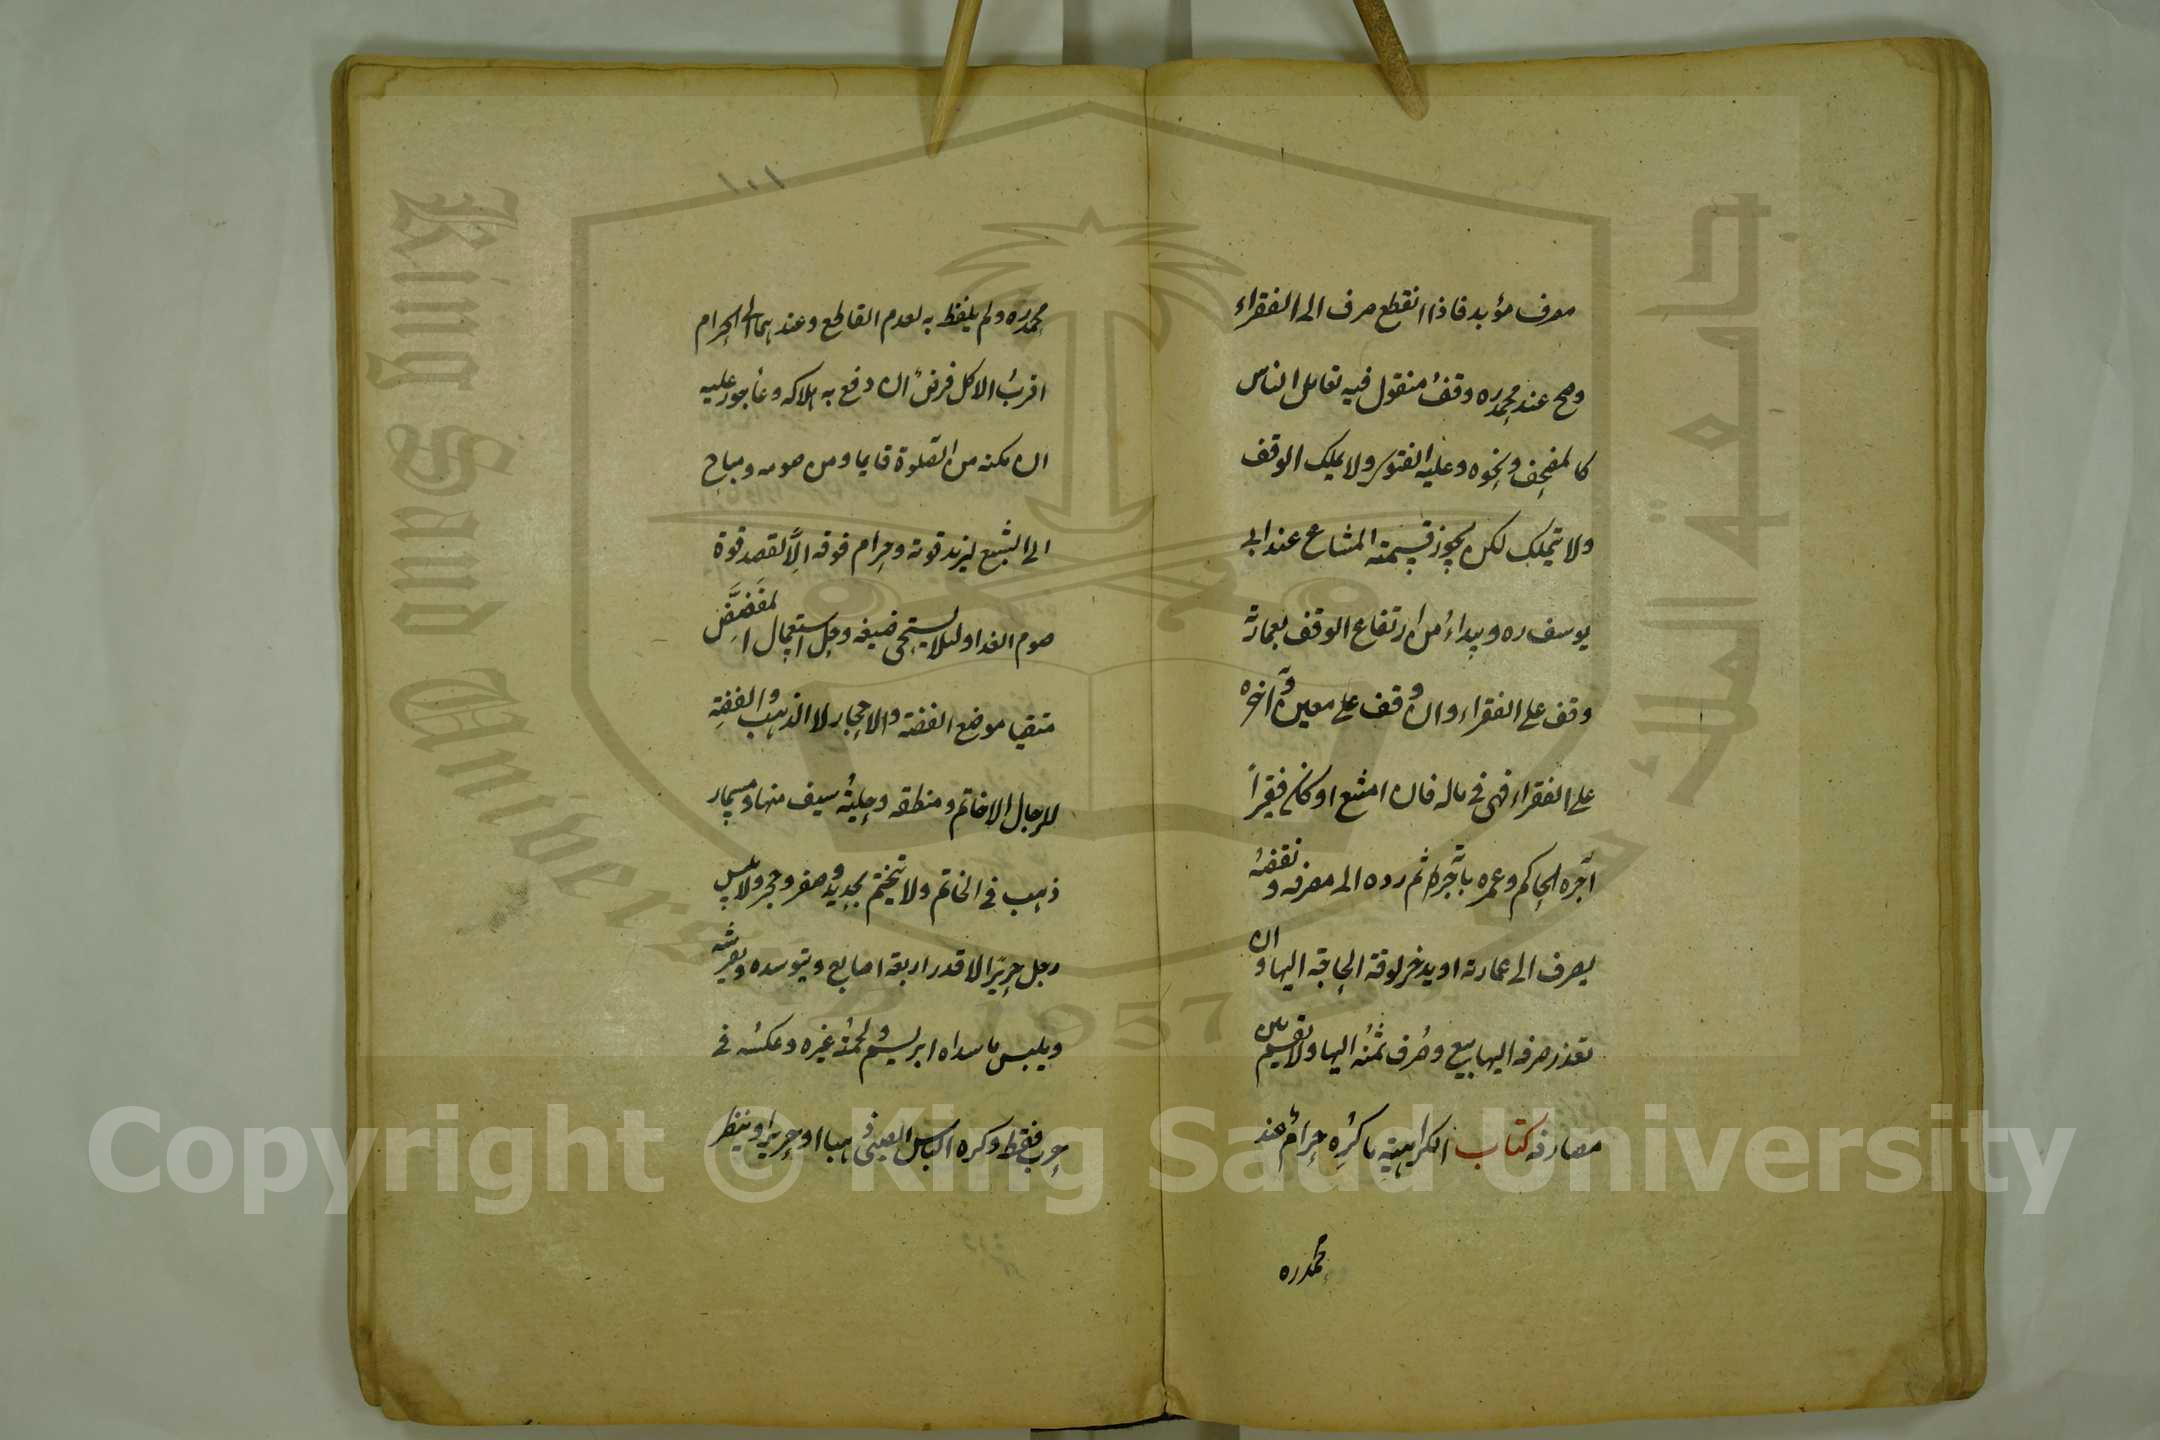 مصرف مؤبد فاذا انقطع صرف الى الفقراء
وصح عند محمد ره وقف منقول فيه تعامل الناس
كالمصحف ونحوه وعليه الفتوى ولا يملك الوقف
ولا يتملك لكن يجوز قسمة المشاع عند ابى
يوسف ره ويبداء من ارتفاع الوقف بعمارته
وقف على الفقراء وان وقف على معين وآخره
على الفقراء فهى فى ماله فان امتنع او كان فقيراً
آجره الحاكم وعمره باجرته ثم رده الى مصرفه ونقضه
يصرف الى عمارته او يدخر لوقت الحاجة اليها وان
تعذر صرفه اليها بيع وصرف ثمنه اليها ولا يقسم بين
مصارفه كتاب الكراهية ما كره حرام عند
محمد ره
١٠١
محمد ره ولم يلفظ به لعدم القاطع وعندهما الى الحرام
اقرب الاكل فرض ان دفع به هلاكه وماجور عليه
ان مكنه من الصلوة قايما ومن صومه ومباح
الى الشبع ليزيد قوته وحرام فوقه الا لقصد قوة
صوم الغد او لئلا يستحى ضيفه وحل استعمال المفضض
متقيا موضع الفضة والاحجار لا الذهب والفضة
للرجال الا خاتم ومنطقه وحلية سيف منها ومسمار
ذهب فى الخاتم ولا يتختم بحديد وصفر وحجر ولا يلبس
رجل حريرا الا قدر اربعة اصابع ويتوسده ويفرشه
ويلبس ما سداه ابريسم ولحمته غيره وعكسه فى
حرب فقط وكره الباس الصبى ذهبا او حريرا وينظر
Copyright © King Saud University
King Saud University
جامعة الملك سعود
1957